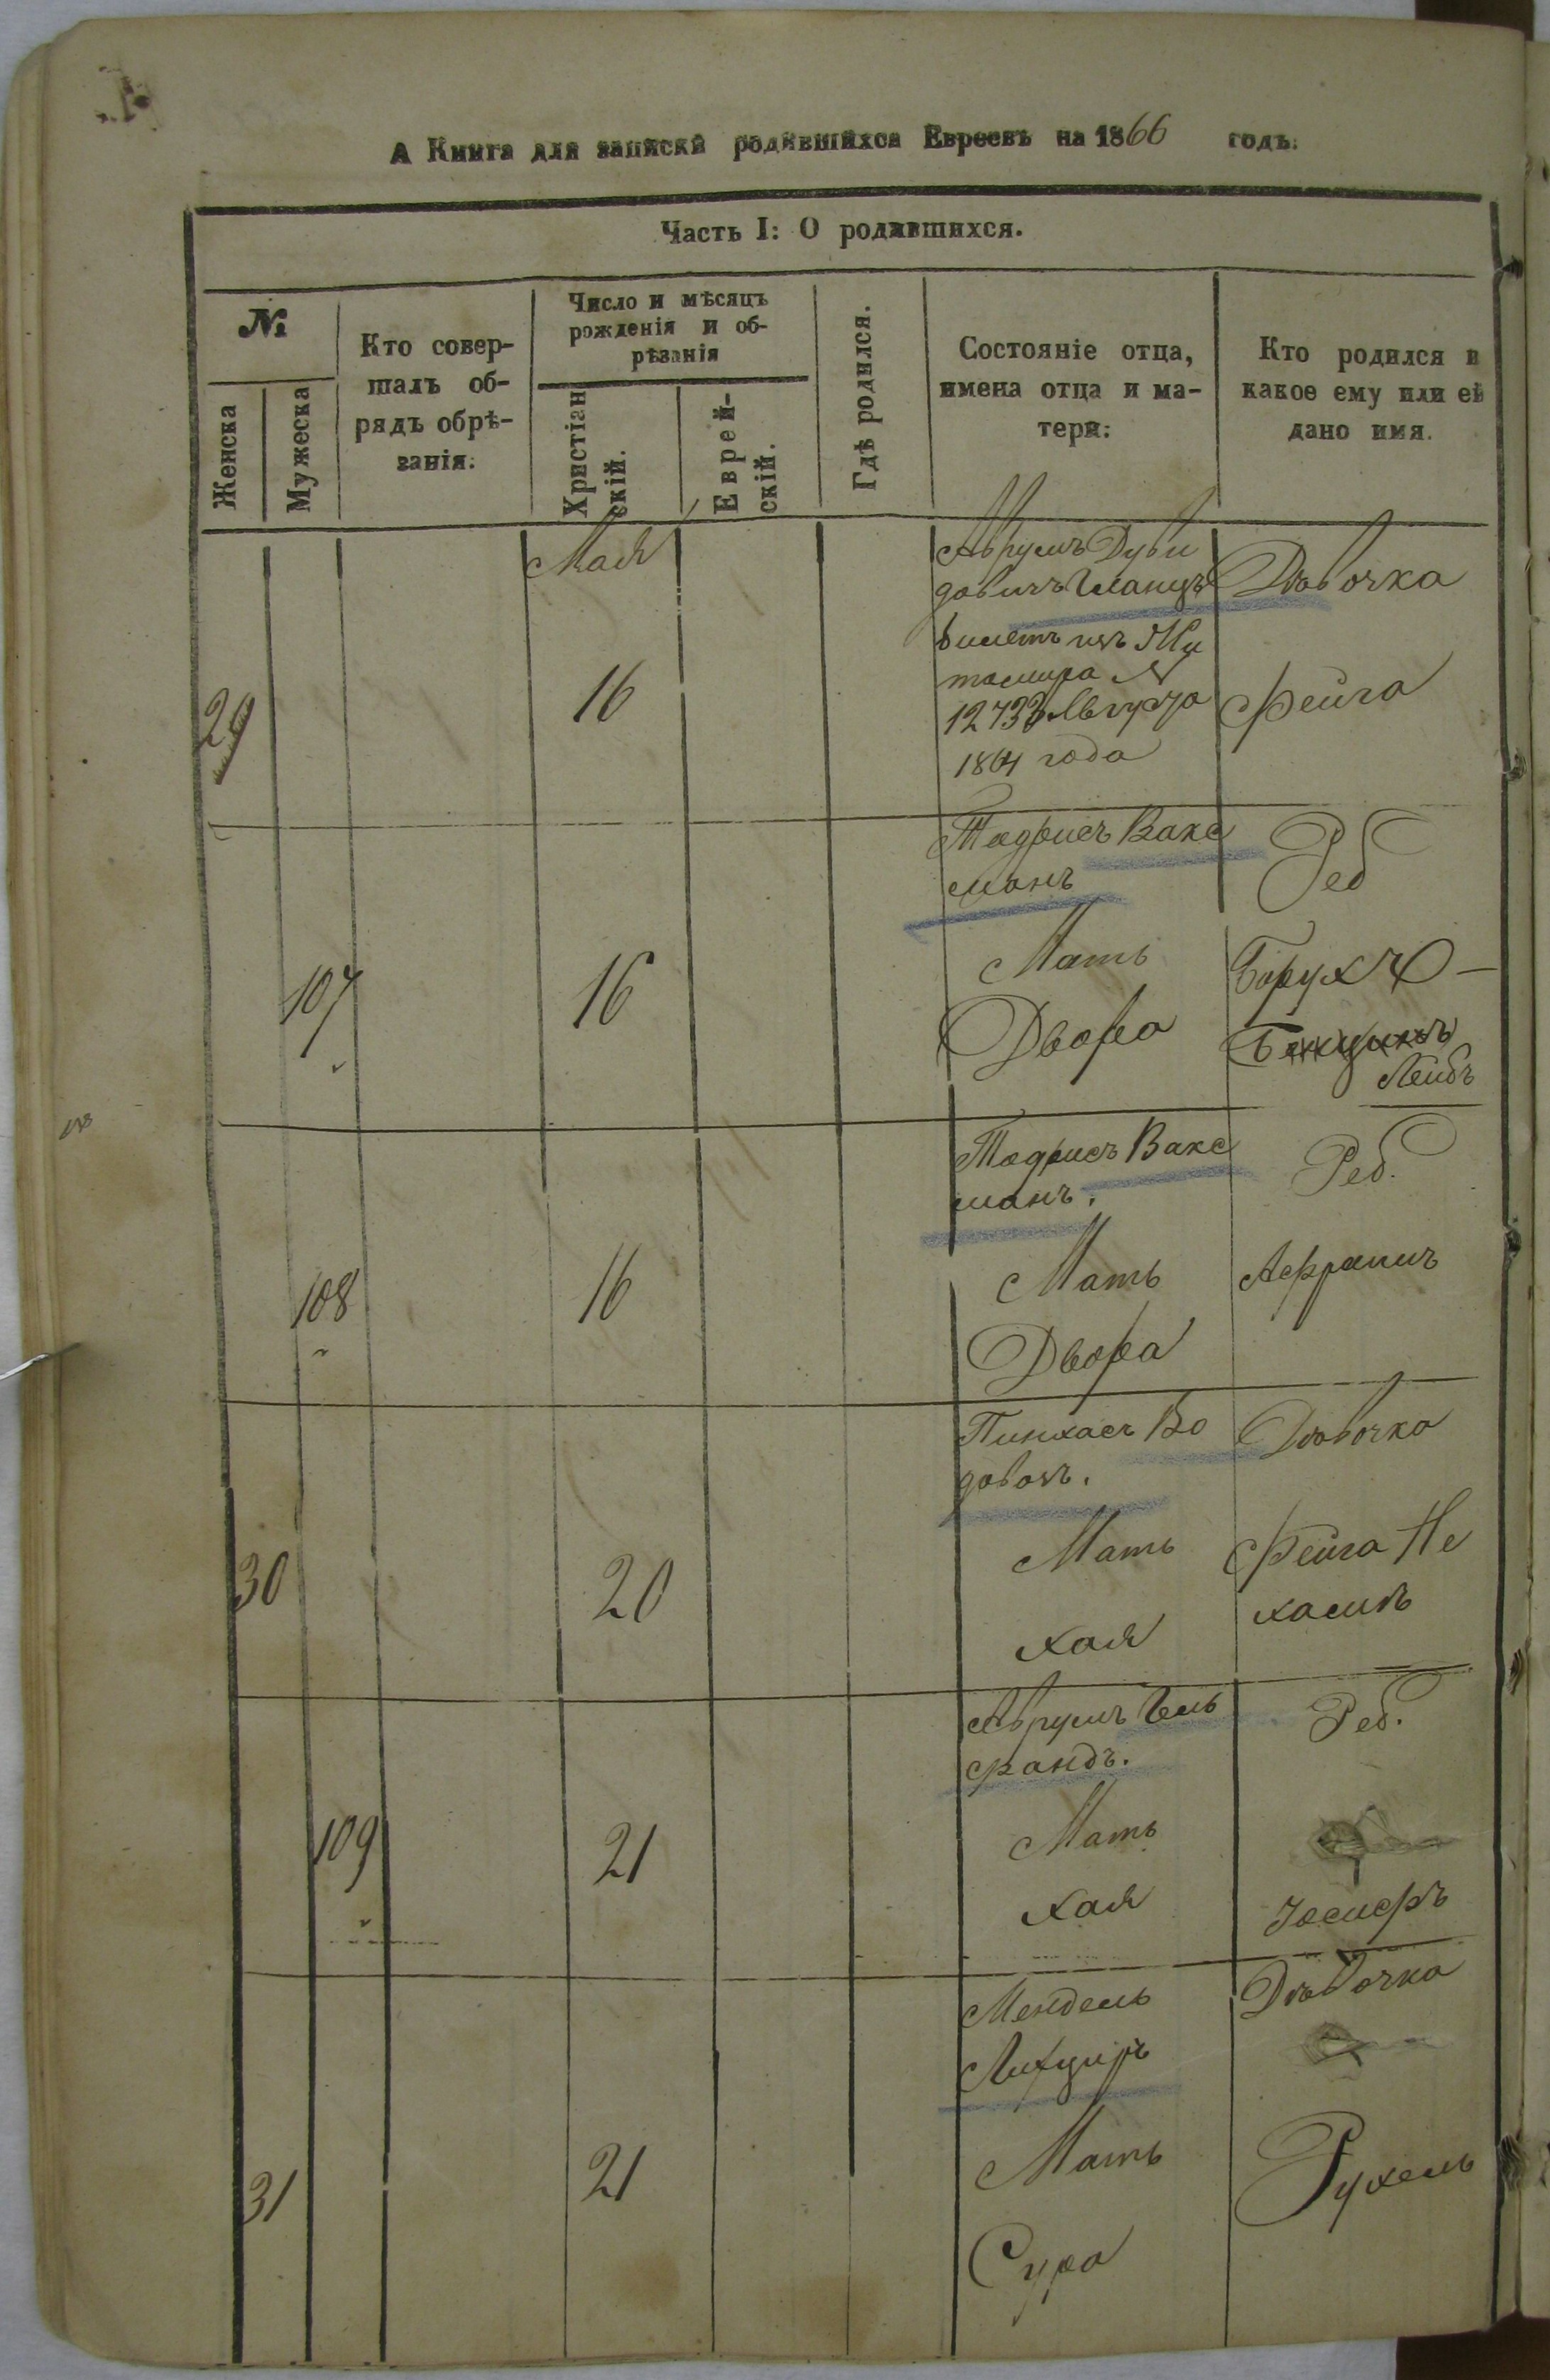 А Книга для записки родившихся Евреевъ на 1866 годъ.
Часть I: О родившихся.
№
Женска
Мужеска
Кто совер-
шалъ об-
рядъ обрѣ-
занія.
Число и мѣсяцъ
рожденія и об-
рѣзанія
Христіан
скій.
Еврей-
скій.
Гдѣ родился.
Состояніе отца,
имена отца и ма-
тери:
Кто родился и
какое ему или ей
дано имя.
Мая
29
16
Аврумъ Дуви
довичъ Гланцъ
билетъ изъ Жи
томира №
12733 Августа
1864 года
Дѣвочка
Фейга
107
16
Тодрисъ Вакс
манъ
Мать
Двора
Реб
Борухъ
Лейбъ
108
16
Тодрисъ Вакс
манъ.
Мать
Двора
Реб.
Афраимъ
30
20
Пинхасъ Во
довозъ.
Мать
Хая
Дѣвочка
Фейга Не
хамиъ
109
21
Аврумъ Гель
фандъ.
Мать
Хая
Реб.
Иосифъ
31
21
Мендель
Лифциръ
Мать
Сура
Дѣвочка
Рухель